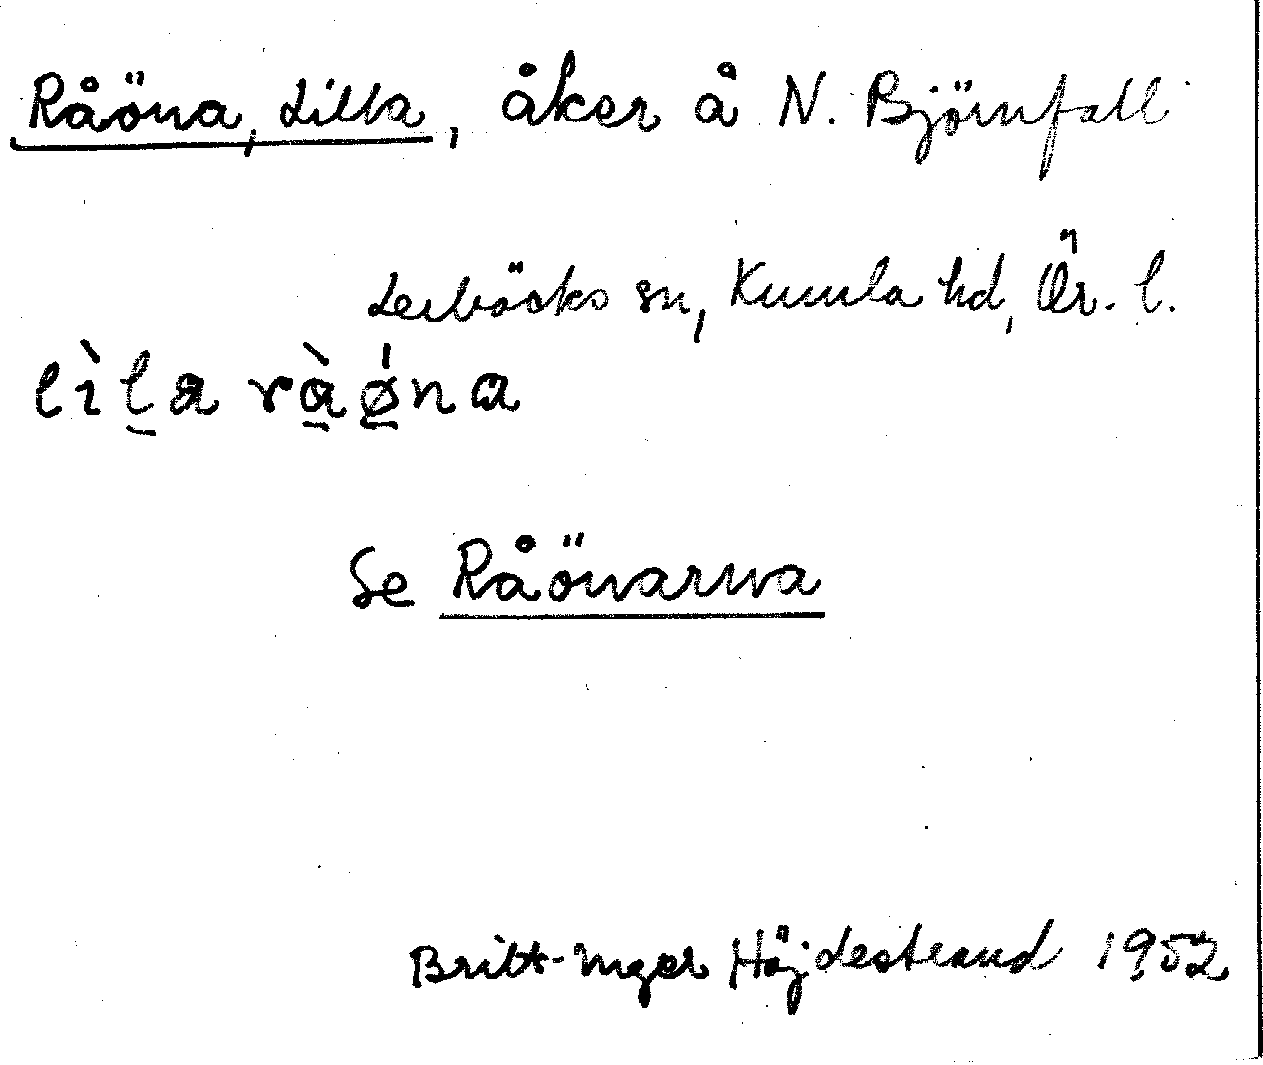 Råöna, Lilla, åker å N. Björnfall
Lerbäcks sn, Kumla hd, Ör. l.
lìl̠a rà̠ǿ̠na
Se Råönarna
Britt-Inger Höjdestrand 1952